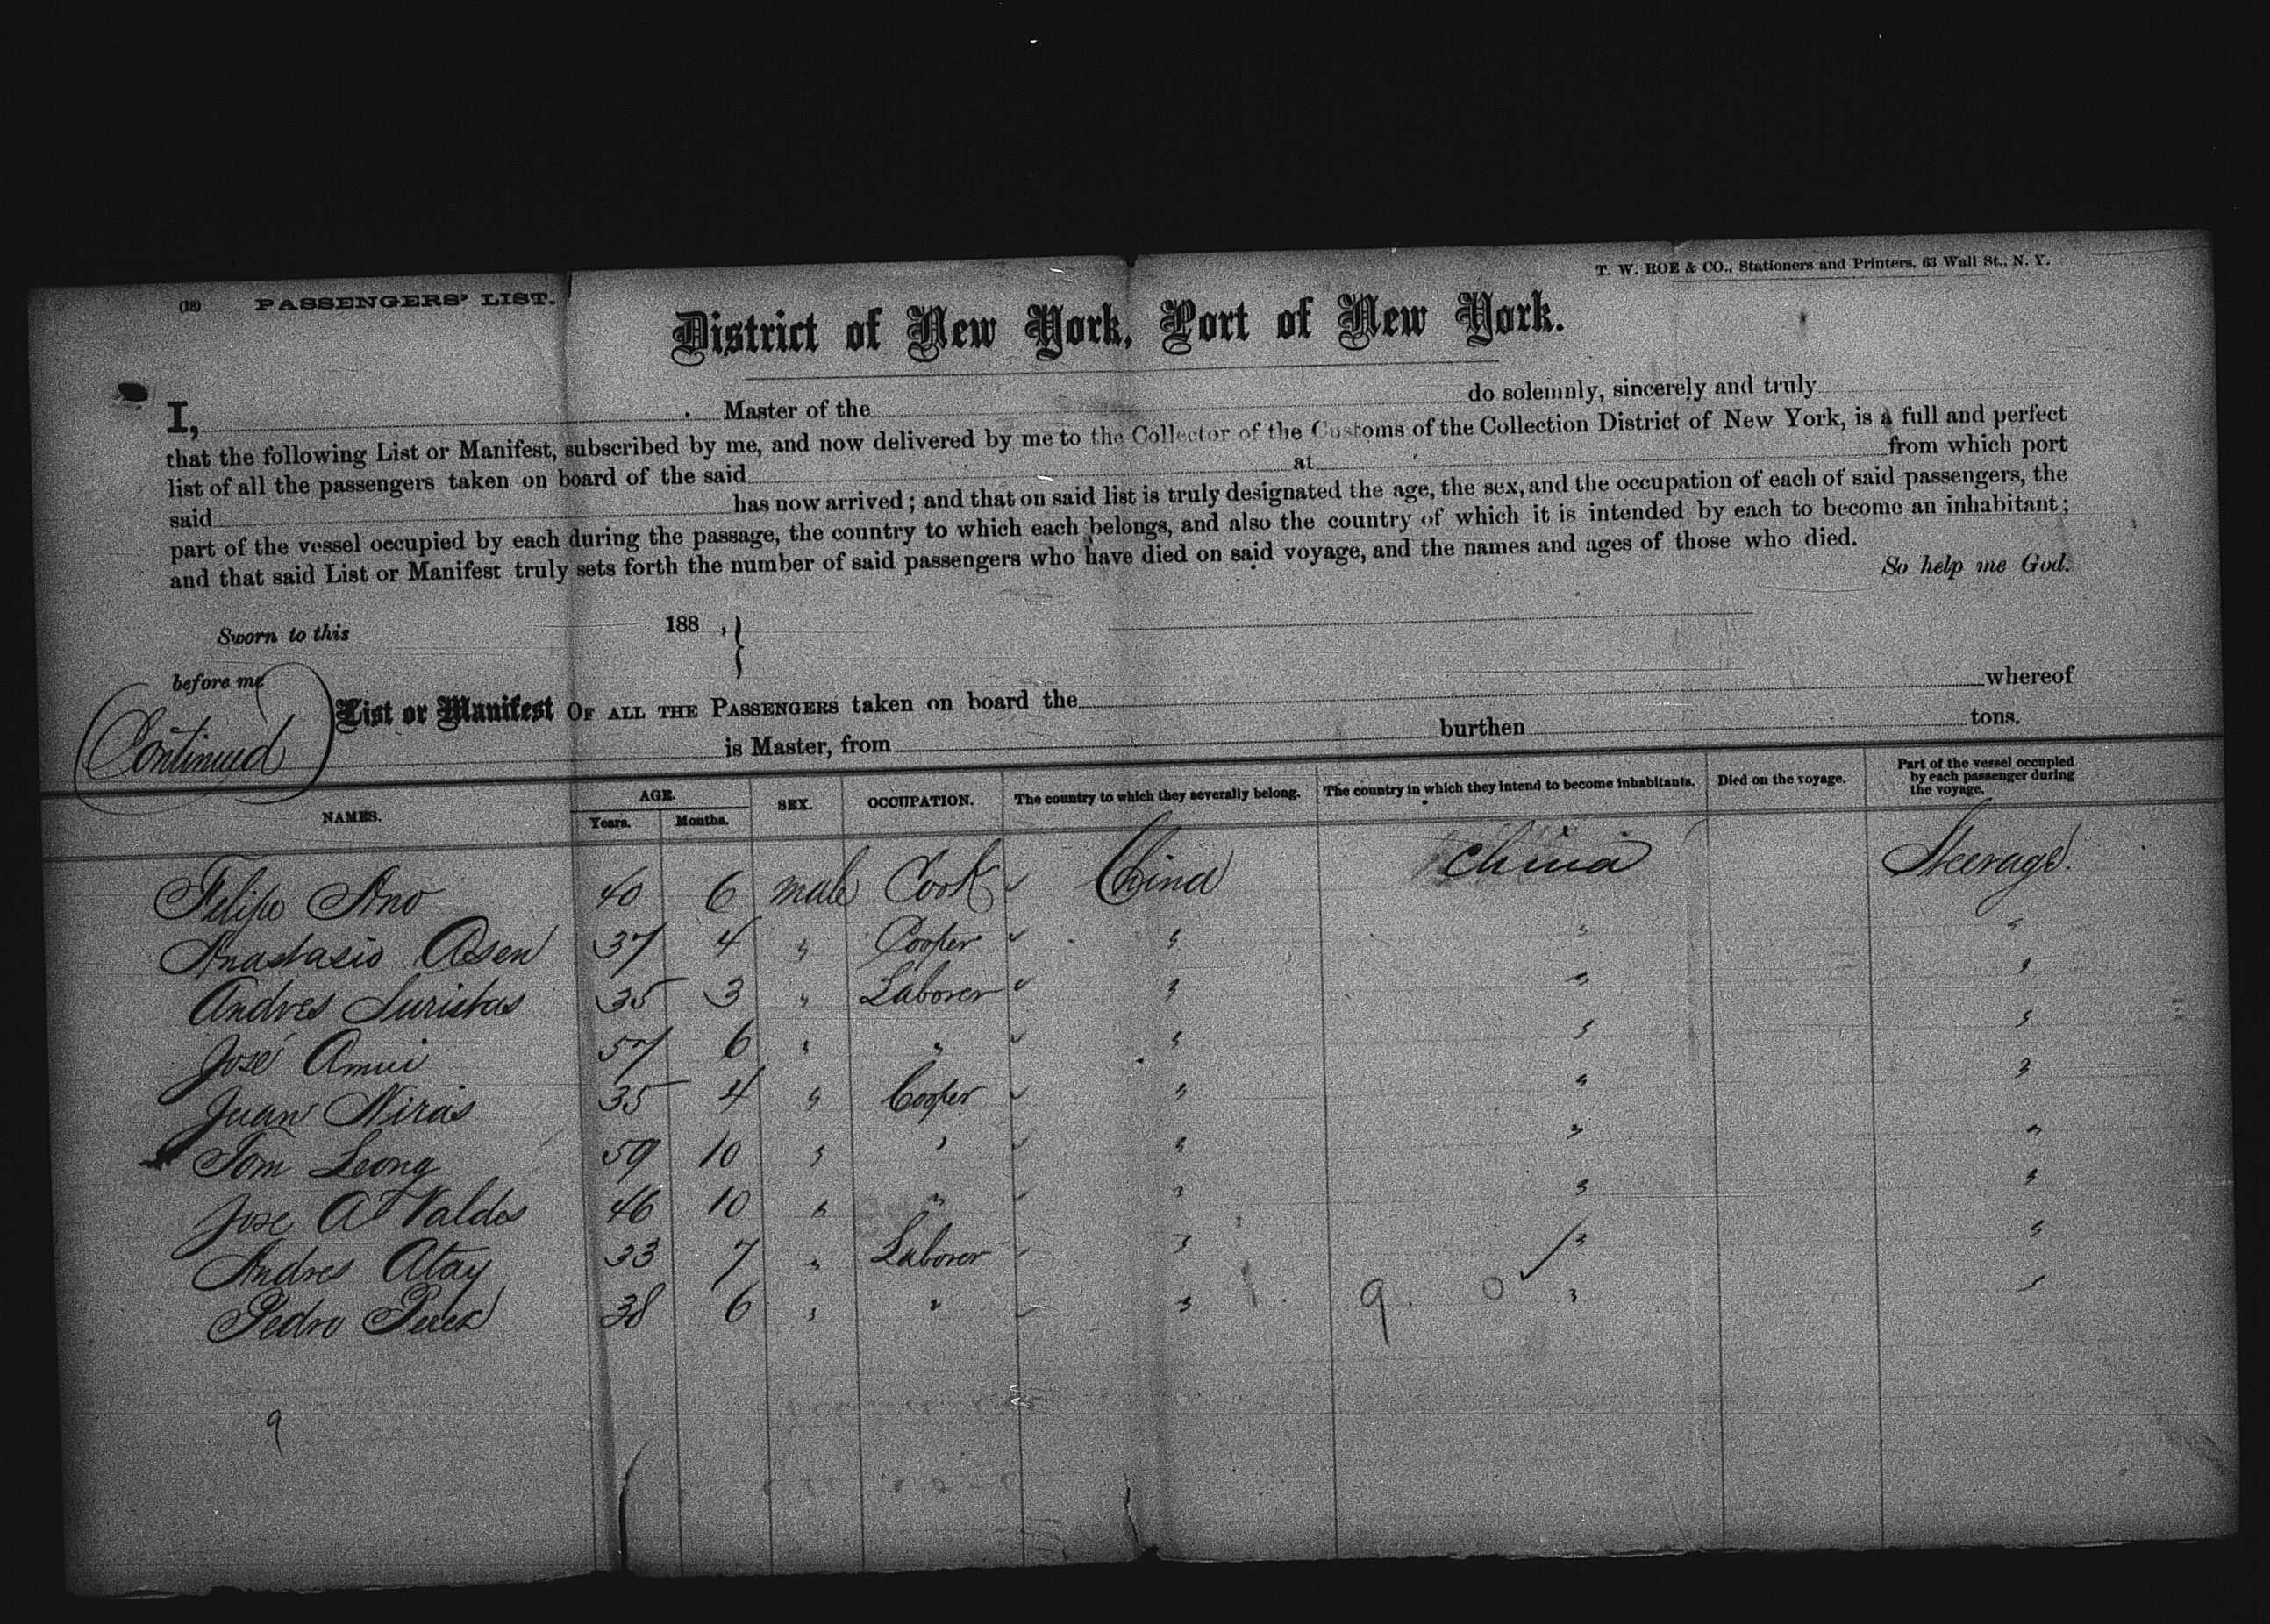 T. W. ROE & CO., Stationers and Printers, 63 Wall St., N. Y.
(18) PASSENGERS' LIST.
District of New York, Port of New York.
I, Master of the do solemnly, sincerely and truly
that the following List or Manifest, subscribed by me, and now delivered by me to the Collector of the Customs of the Collection District of New York, is a full and perfect
list of all the passengers taken on board of the said at from which port
said has now arrived; and that on said list is truly designated the age, the sex, and the occupation of each of said passengers, the
part of the vessel occupied by each during the passage, the country to which each belongs, and also the country of which it is intended by each to become an inhabitant;
and that said List or Manifest truly sets forth the number of said passengers who have died on said voyage, and the names and ages of those who died.
So help me God.
Sworn to this 188 , }
before me
List or Manifest OF ALL THE PASSENGERS taken on board the whereof
(Continued) is Master, from burthen tons.
NAMES. AGE. Years. Months. SEX. OCCUPATION. The country to which they severally belong. The country in which they intend to become inhabitants. Died on the voyage. Part of the vessel occupied by each passenger during the voyage.
Felipo Ano 40 6 male Cook China China Steerage.
Anastasio Asen 37 4 " Cooper " " "
Andres 35 3 " Laborer " " "
José Amui 57 6 " " " " "
Juan Niras 35 4 " Cooper " " "
Tom Leong 59 10 " " " " "
Jose A Valdes 46 10 " " " " "
Andres Atay 33 7 " Laborer " " "
Pedro Perez 38 6 " " " " "
1. 9. 0
9